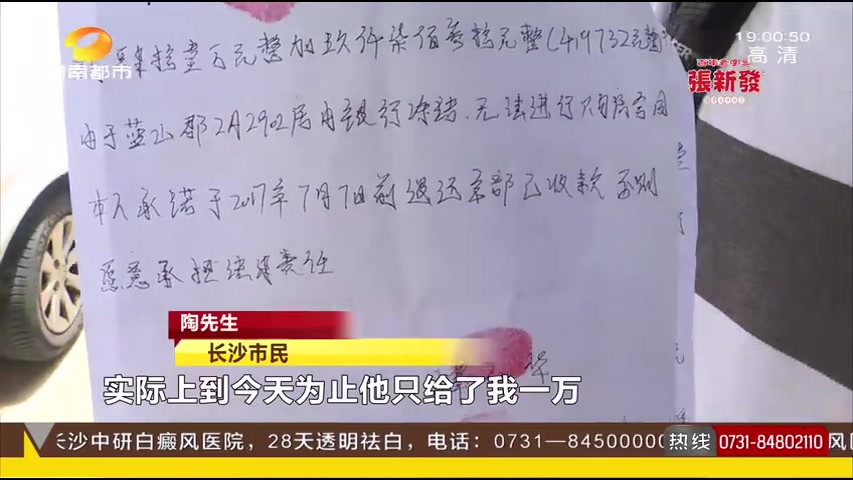 湖南都市
19:00:50
高清
百年老字号
張新發
拾壹万元整加玖仟柒佰叁拾元整(419732元整
由于蓝山郡2月2902房由银行冻结、无法进行
本人承诺于2017年7月7日前退还全部已收款 否则
愿意承担法律责任
陶先生
长沙市民
实际上到今天为止他只给了我一万
长沙中研白癜风医院，28天透明祛白，电话：0731—84500000
热线 0731-84802110